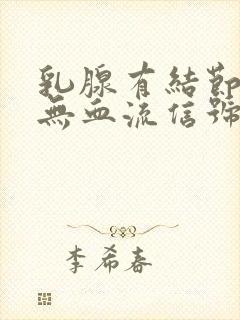 乳腺有結節
無血流信號
李希春